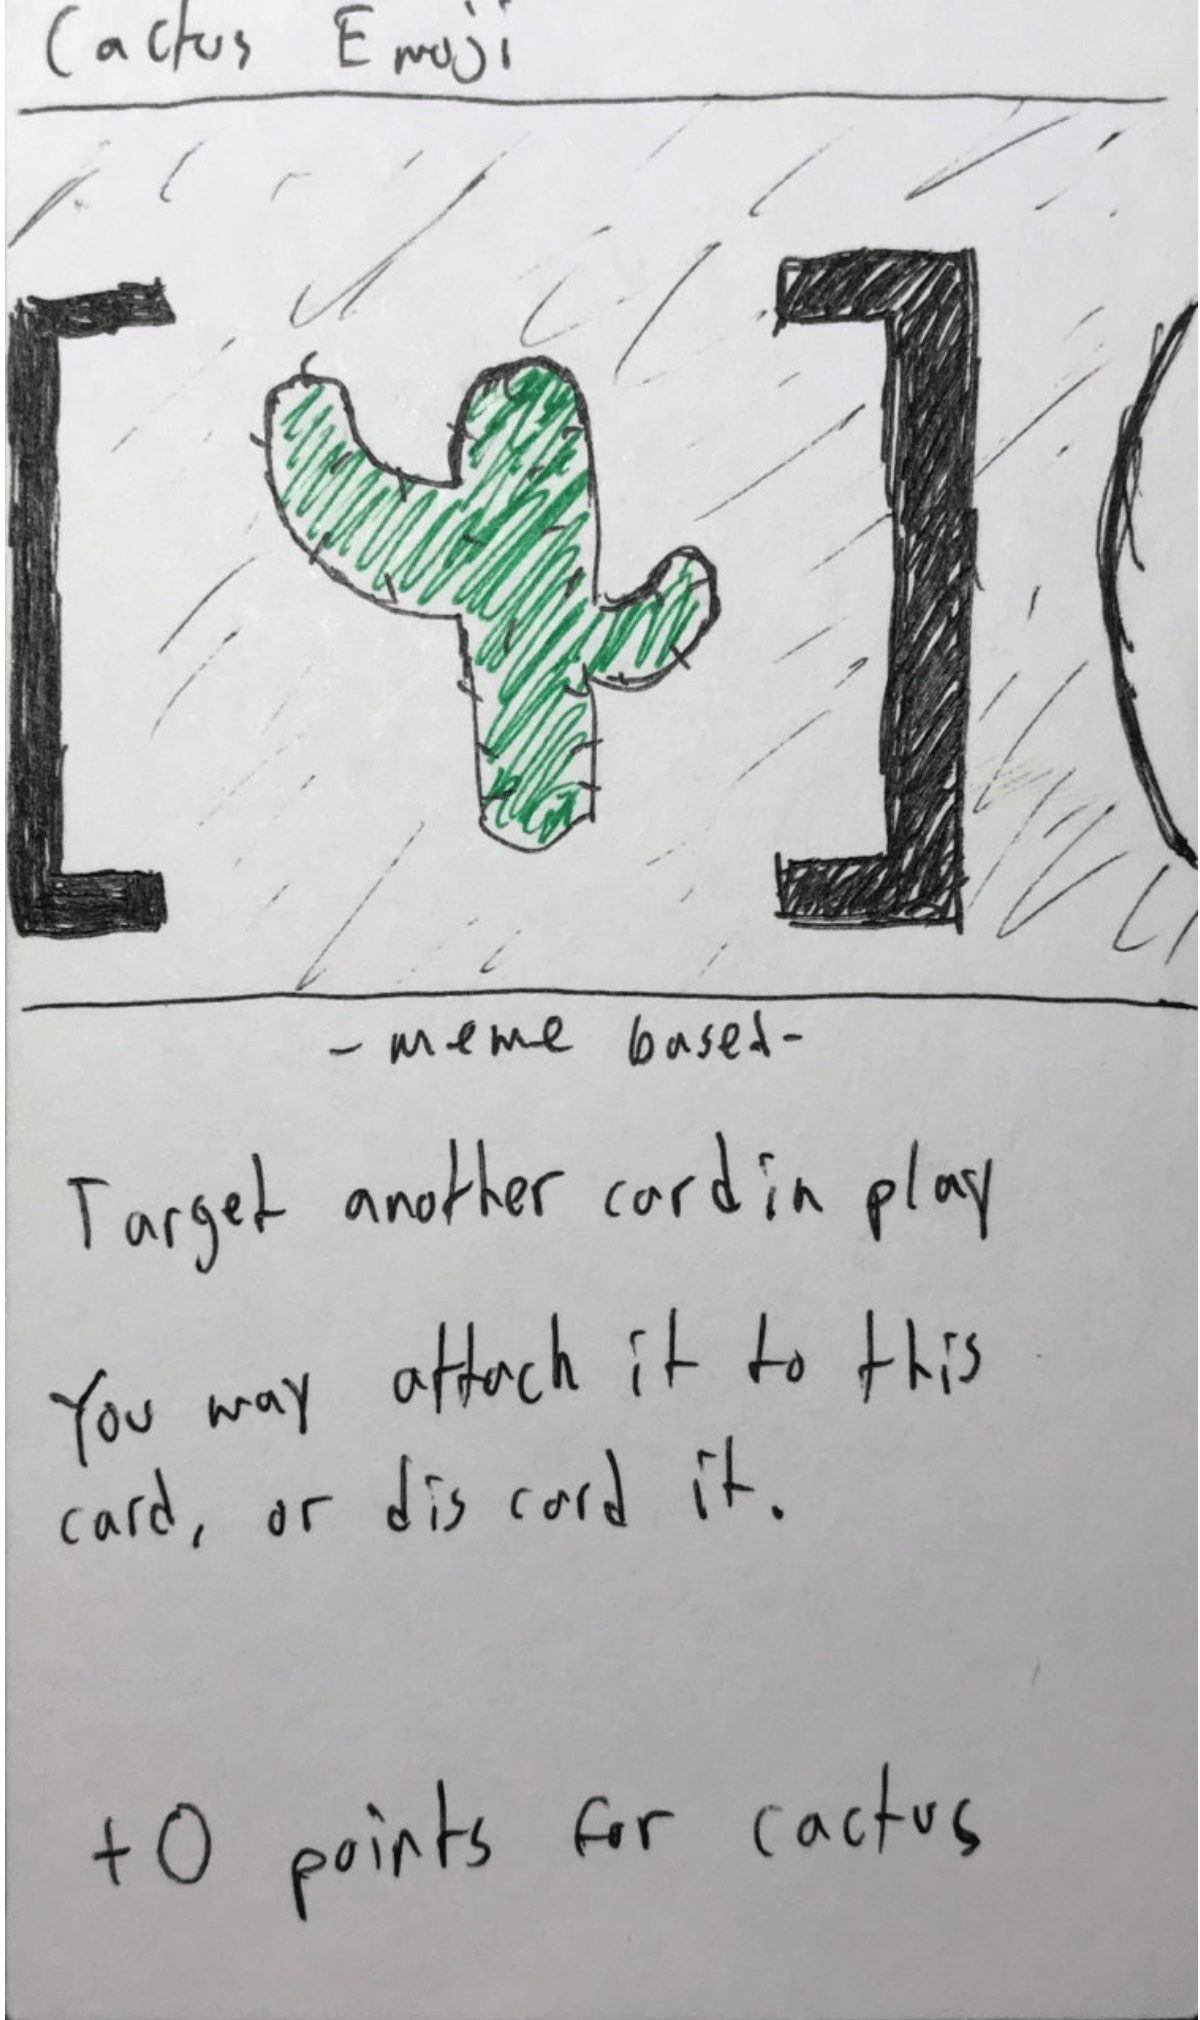 Cactus Emoji
[ ] (
- meme based -
Target another card in play
You may attach it to this
card, or discard it.
+0 points for cactus